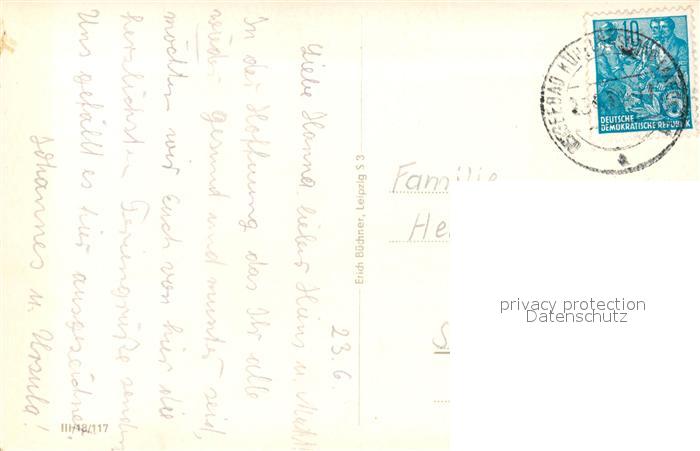 23.6.
Liebe Hanna lieber Heinz u.
In der Hoffnung das Ihr alle
wieder gesund und munter seid,
möchten wir Euch von hier die
herzlichsten Feriengrüße senden
Uns gefällt es hier ausgezeichnet.
Johannes u. Ursula!
III/18/117
Erich Büchner, Leipzig S 3
Familie
He
10
DEUTSCHE
DEMOKRATISCHE REPUBLIK
OSTSEEBAD
privacy protection
Datenschutz